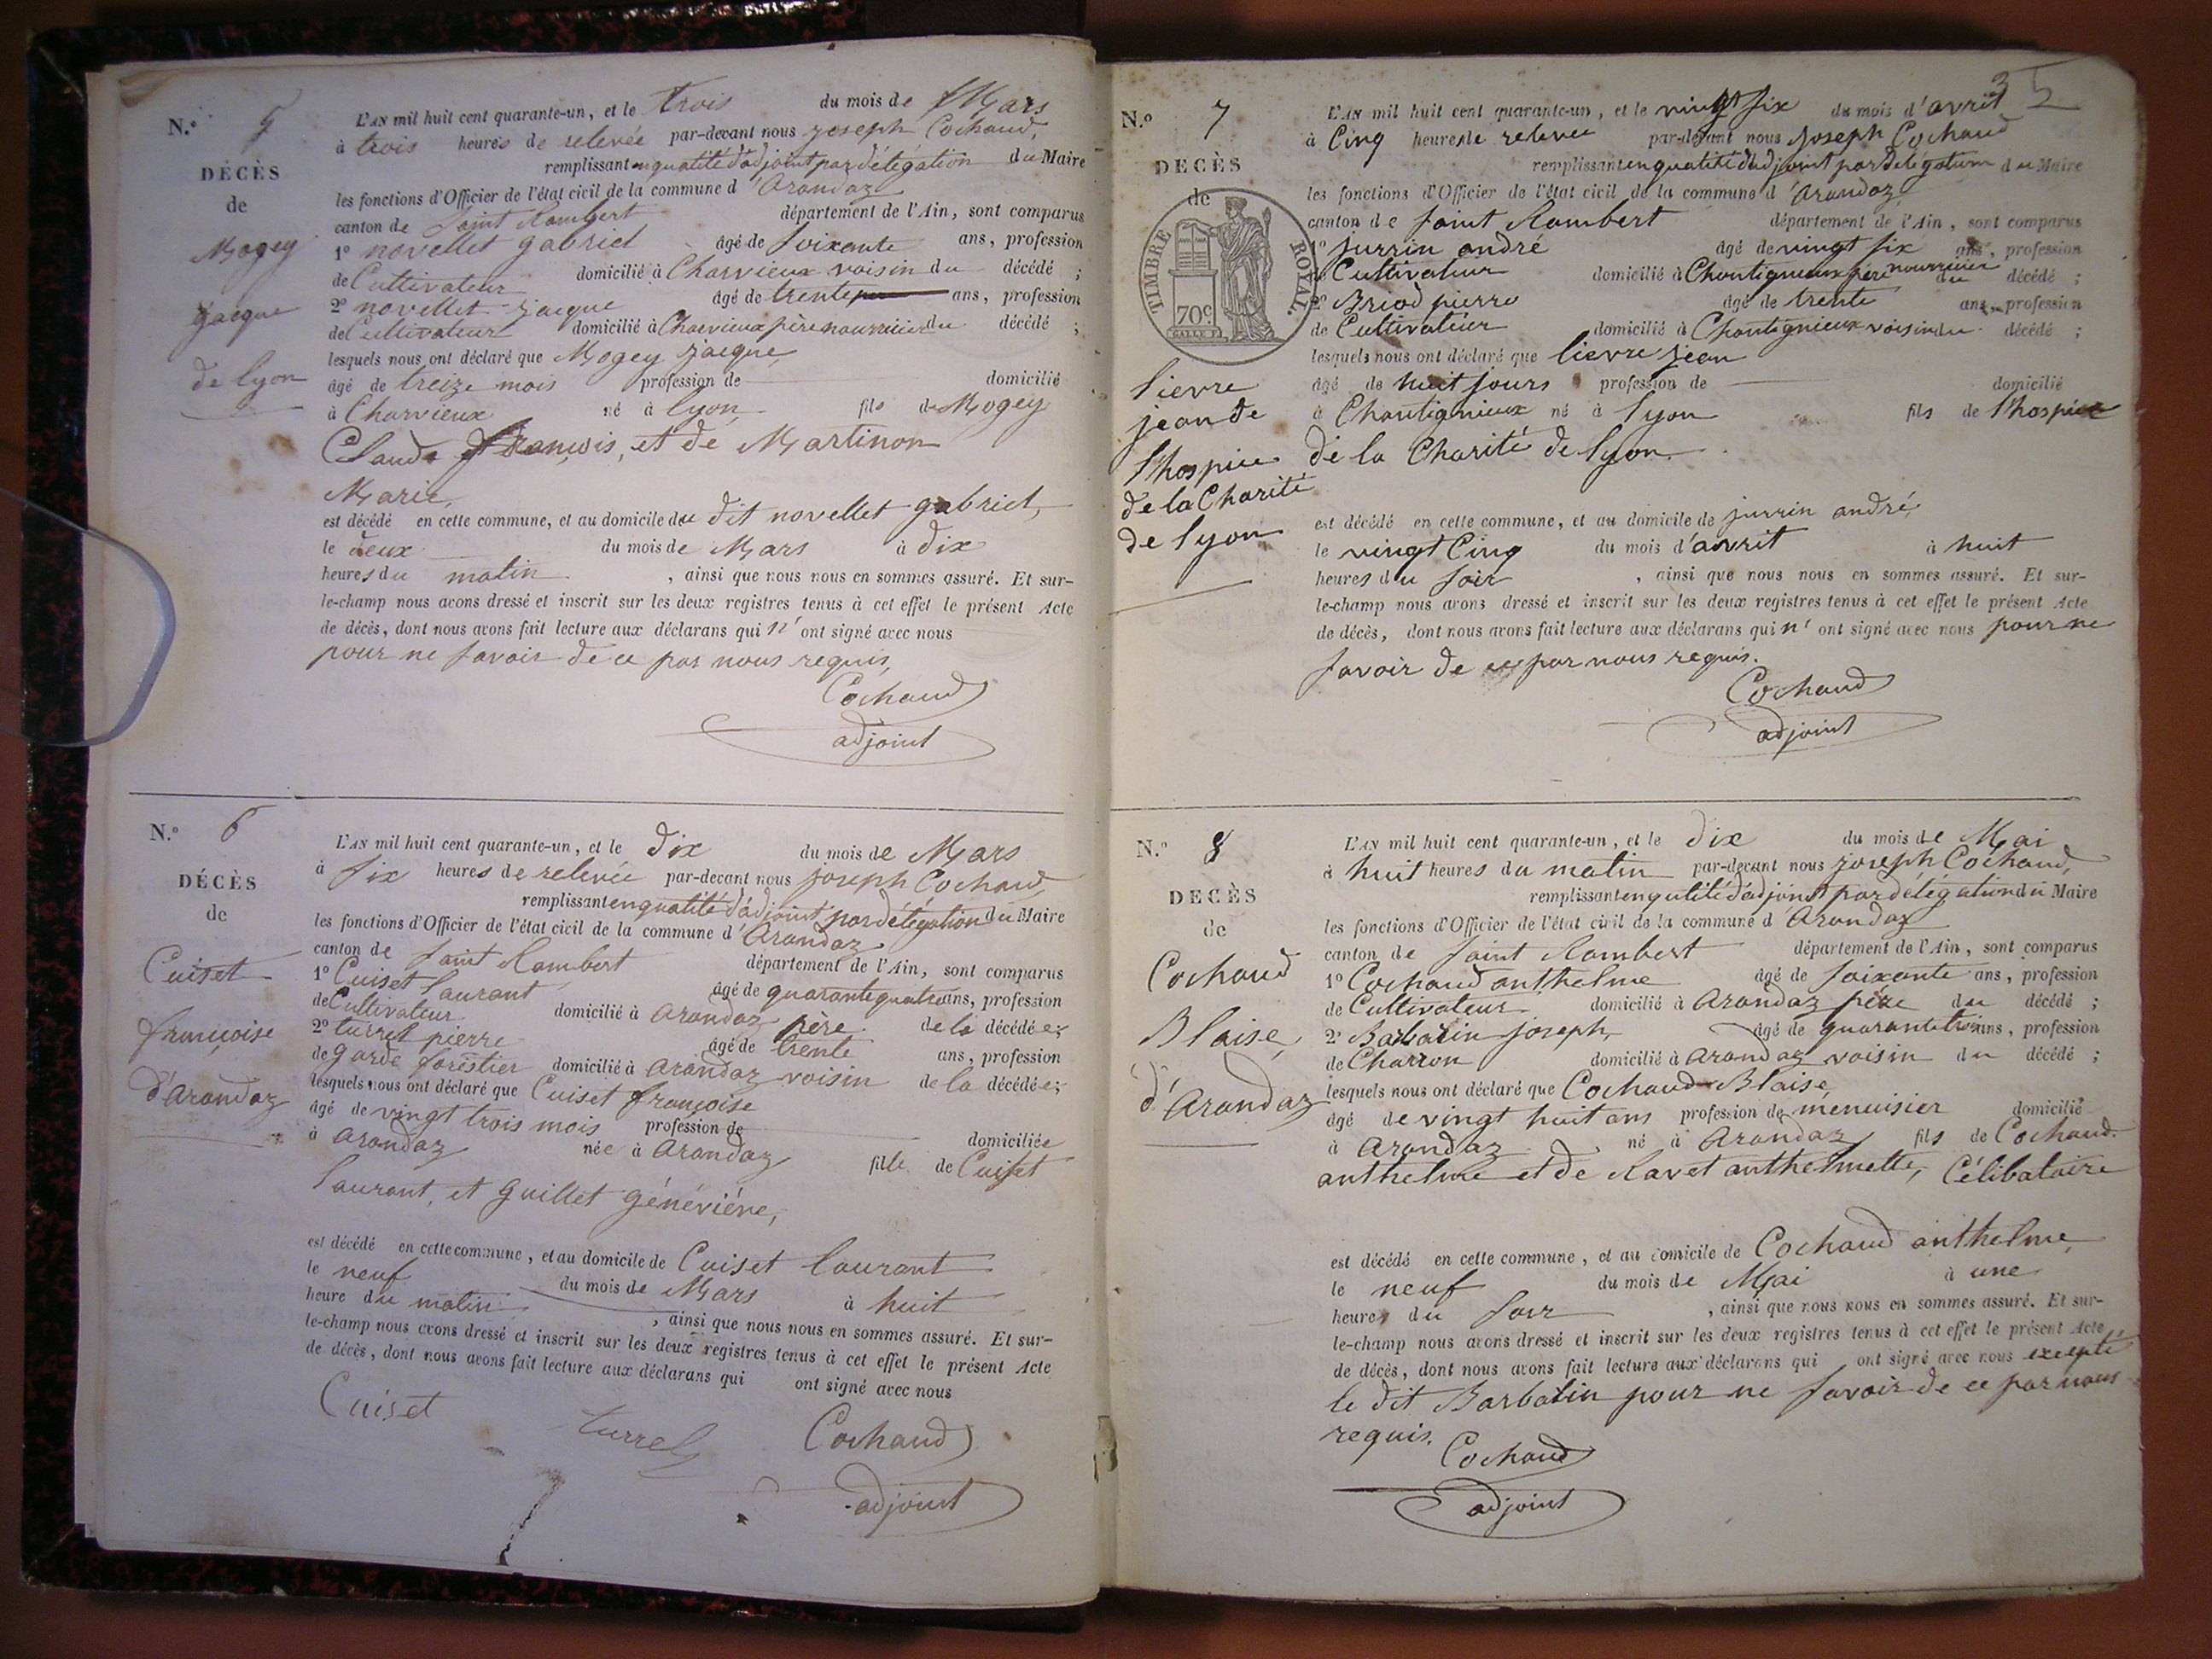 N.o 5
DÉCÈS
de
Mogey
jacque
de lyon
L'AN mil huit cent quarante-un, et le trois du mois de Mars
à trois heures de relevée par-devant nous joseph Cochaud,
remplissant en qualité d'adjoint par délégation du Maire
les fonctions d'Officier de l'état civil de la commune d'Arandaz
canton de Saint Rambert département de l'Ain, sont comparus
1o novellet gabriel âgé de soixante ans, profession
de Cultivateur domicilié à Charvieux voisin du décédé ;
2o novellet jacque âgé de trente ans, profession
de Cultivateur domicilié à Charvieux père nourricier du décédé ;
lesquels nous ont déclaré que Mogey jacque
âgé de treize mois profession de domicilié
à Charvieux né à lyon fils de Mogey
Claude françois, et de Martinon
Marie,
est décédé en cette commune, et au domicile du dit novellet gabriel,
le deux du mois de Mars à dix
heures du matin , ainsi que nous nous en sommes assuré. Et sur-
le-champ nous avons dressé et inscrit sur les deux registres tenus à cet effet le présent Acte
de décès, dont nous avons fait lecture aux déclarans qui n' ont signé avec nous
pour ne savoir de ce par nous requis,
Cochaud
adjoint
N.o 6
DÉCÈS
de
Cuiset
françoise
d'Arandaz
L'AN mil huit cent quarante-un, et le dix du mois de Mars
à six heures de relevée par-devant nous joseph Cochaud,
remplissant en qualité d'adjoint par délégation du Maire
les fonctions d'Officier de l'état civil de la commune d'Arandaz
canton de Saint Rambert département de l'Ain, sont comparus
1o Cuiset laurant âgé de quarante quatre ans, profession
de Cultivateur domicilié à Arandaz père de la décédée ;
2o turrel pierre âgé de trente ans, profession
de garde forestier domicilié à Arandaz voisin de la décédée ;
lesquels nous ont déclaré que Cuiset françoise
âgé de vingt trois mois profession de domiciliée
à Arandaz née à Arandaz fille de Cuiset
laurant, et Guillet généviéve,
est décédé en cette commune, et au domicile de Cuiset laurant
le neuf du mois de Mars à huit
heure du matin , ainsi que nous nous en sommes assuré. Et sur-
le-champ nous avons dressé et inscrit sur les deux registres tenus à cet effet le présent Acte
de décès, dont nous avons fait lecture aux déclarans qui ont signé avec nous
Cuiset turrel Cochaud
adjoint
35
N.o 7
DÉCÈS
de
TIMBRE ROYAL.
70c.
lievre
jean de
l'hospice
de la Charité
de lyon
L'AN mil huit cent quarante-un, et le vingt six du mois d'avril
à Cinq heures de relevée par-devant nous joseph Cochaud
remplissant en qualité d'adjoint par délégation du Maire
les fonctions d'Officier de l'état civil de la commune d'Arandaz
canton de Saint Rambert département de l'Ain, sont comparus
1o jurrin andré âgé de vingt six ans, profession
de Cultivateur domicilié à Chantignieux père nourricier du décédé ;
2o Briod pierre âgé de trente ans, profession
de Cultivateur domicilié à Chantignieux voisin du décédé ;
lesquels nous ont déclaré que lievre jean
âgé de huit jours profession de domicilié
à Chantignieux né à lyon fils de l'hospice
de la Charité de lyon.
est décédé en cette commune, et au domicile de jurrin andré,
le vingt Cinq du mois d'avril à huit
heures du soir , ainsi que nous nous en sommes assuré. Et sur-
le-champ nous avons dressé et inscrit sur les deux registres tenus à cet effet le présent Acte
de décès, dont nous avons fait lecture aux déclarans qui n' ont signé avec nous pour ne
savoir de ce par nous requis.
Cochaud
adjoint
N.o 8
DÉCÈS
de
Cochaud
Blaise,
d'Arandaz
L'AN mil huit cent quarante-un, et le dix du mois de Mai
à huit heures du matin par-devant nous joseph Cochaud,
remplissant en qulité d'adjoint par délégation du Maire
les fonctions d'Officier de l'état civil de la commune d'Arandaz
canton de Saint Rambert département de l'Ain, sont comparus
1o Cochaud anthelme âgé de soixante ans, profession
de Cultivateur domicilié à Arandaz père du décédé ;
2o Barbatin joseph, âgé de quarante trois ans, profession
de Charron domicilié à Arandaz voisin du décédé ;
lesquels nous ont déclaré que Cochaud Blaise
âgé de vingt huit ans profession de menuisier domicilié
à Arandaz né à Arandaz fils de Cochaud
anthelme et de Ravet anthelmette, Célibataire
est décédé en cette commune, et au domicile de Cochaud anthelme,
le neuf du mois de Mai à une
heure du soir , ainsi que nous nous en sommes assuré. Et sur-
le-champ nous avons dressé et inscrit sur les deux registres tenus à cet effet le présent Acte
de décès, dont nous avons fait lecture aux déclarans qui ont signé avec nous excepté
le dit Barbatin pour ne savoir de ce par nous
requis.
Cochaud
adjoint